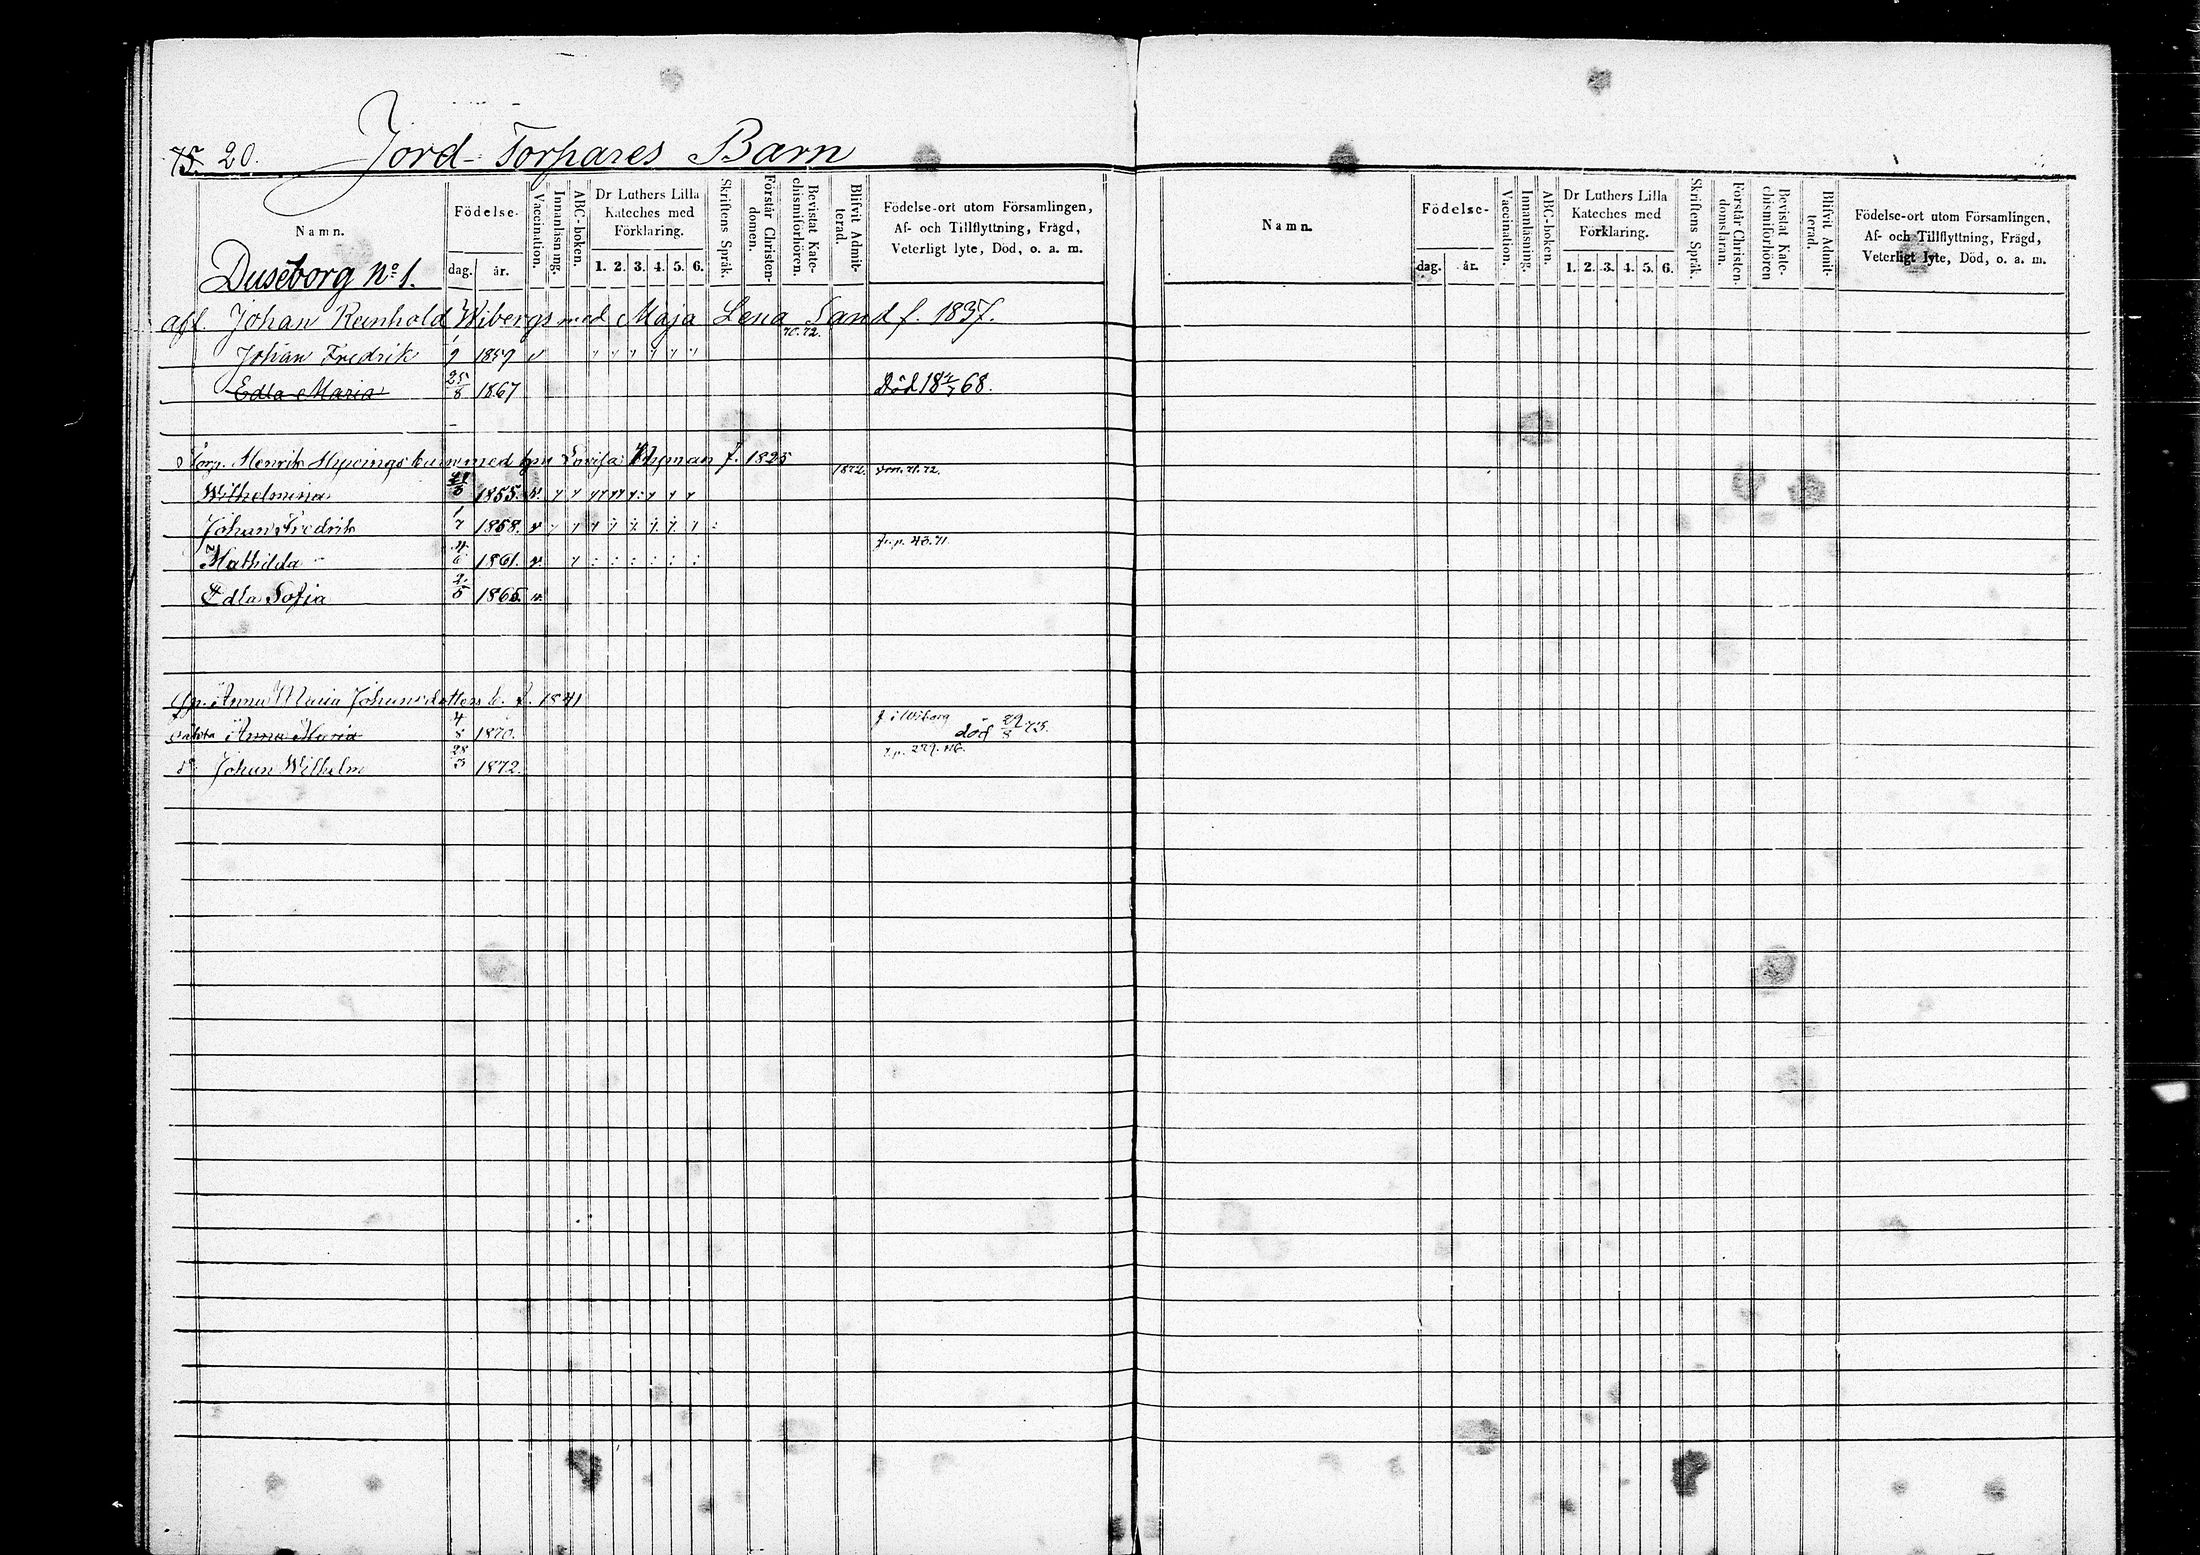 75. 20. Jord-Torpares Barn
Namn. Födelse- dag. år. Vaccination. Innanläsning. ABC-boken. Dr Luthers Lilla Kateches med Förklaring. 1. 2. 3. 4. 5. 6. Skriftens Språk. Förstår Christen-domen. Bevistat Kate-chismiförhören. Blifvit Admit-terad. Födelse-ort utom Församlingen, Af- och Tillflyttning, Frägd, Veterligt lyte, Död, o. a. m.
Duseborg No 1.
aff. Johan Reinhold Wibergs med Maja Lena Sand f. 1837.
70.72.
Johan Fredrik 1/9 1859 v
Edla Maria 25/8 1867 Död 18 4/7 68.
Torp. Henrik med Lovisa Nyman f. 1825
1872.
Wilhelmina 1855. v.
Johan Fredrik 1/7 1858. v
fr. p. 43.71
Mathilda 4/6 1861. v.
Edla Sofia 2/5 1865. v.
Anna Maria Johansdotters b. f. 1841
f. i Wiborg
oäkta Anna Maria 4/8 1870. död 29/8 73.
Johan Wilhelm 28/3 1872.
Namn. Födelse- dag. år. Vaccination. Innanläsning. ABC-boken. Dr Luthers Lilla Kateches med Förklaring. 1. 2. 3. 4. 5. 6. Skriftens Språk. Förstår Christen-domslaran. Bevistat Kate-chismiförhören Blifvit Admit-terad. Födelse-ort utom Församlingen, Af- och Tillflyttning, Frägd, Veterligt lyte, Död, o. a. m.